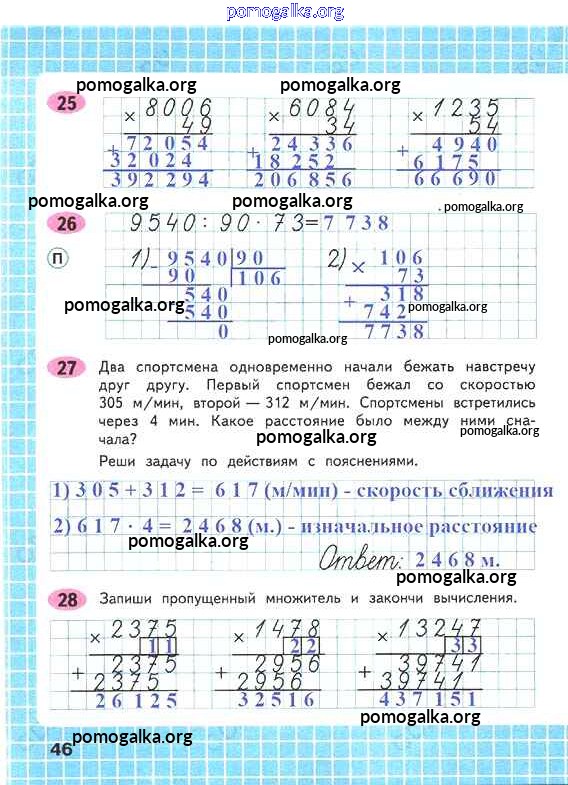 pomogalka.org
pomogalka.org pomogalka.org
25 × 8006 × 6084 × 1235
49 34 54
+ 72054 + 24336 + 4940
32024 18252 6175
392294 206856 66690
pomogalka.org pomogalka.org pomogalka.org
26 9540 : 90 · 73 = 7738
П 1) - 9540 90 2) × 106
90 106 73
540 + 318
540 742
0 7738
pomogalka.org pomogalka.org pomogalka.org
27 Два спортсмена одновременно начали бежать навстречу
друг другу. Первый спортсмен бежал со скоростью
305 м/мин, второй — 312 м/мин. Спортсмены встретились
через 4 мин. Какое расстояние было между ними сна-
чала?
pomogalka.org pomogalka.org
Реши задачу по действиям с пояснениями.
1) 305 + 312 = 617 (м/мин) - скорость сближения
2) 617 · 4 = 2468 (м.) - изначальное расстояние
pomogalka.org
Ответ: 2468 м.
pomogalka.org
28 Запиши пропущенный множитель и закончи вычисления.
× 2375 × 1478 × 13247
11 22 33
+ 2375 + 2956 + 39741
2375 2956 39741
26125 32516 437151
pomogalka.org pomogalka.org
46